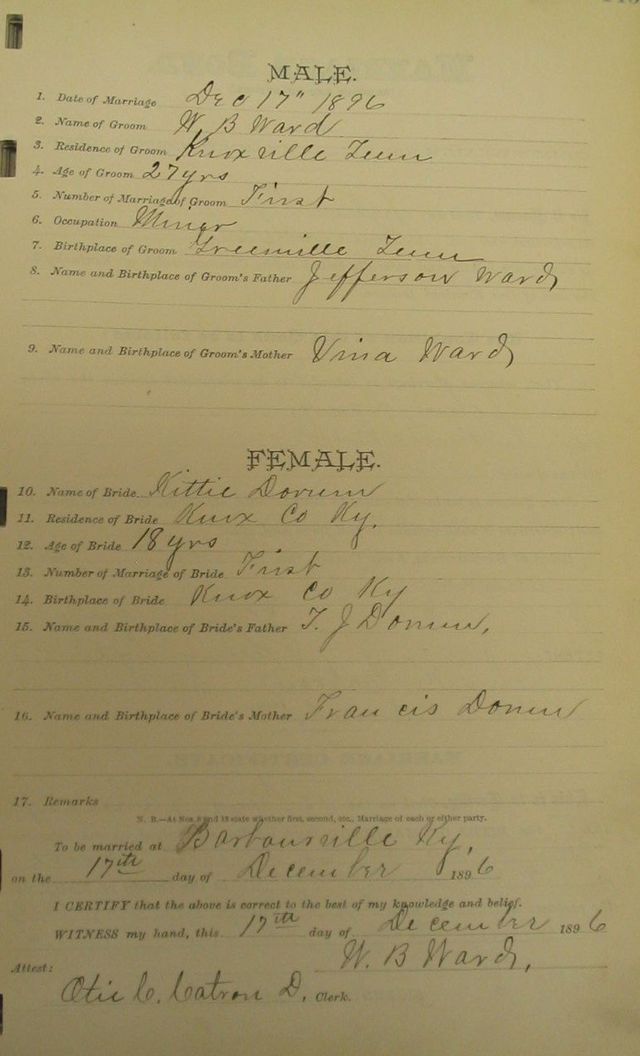 MALE.
1. Date of Marriage Dec 17" 1896
2. Name of Groom W. B Ward
3. Residence of Groom Knoxville Tenn
4. Age of Groom 27 yrs
5. Number of Marriage of Groom First
6. Occupation Miner
7. Birthplace of Groom Greenville Tenn
8. Name and Birthplace of Groom's Father Jefferson Ward
9. Name and Birthplace of Groom's Mother Vina Ward
FEMALE.
10. Name of Bride Kittie
11. Residence of Bride Knox Co Ky.
12. Age of Bride 18 yrs
13. Number of Marriage of Bride First
14. Birthplace of Bride Knox Co Ky
15. Name and Birthplace of Bride's Father T. J
16. Name and Birthplace of Bride's Mother Francis
17. Remarks
N. B.—At Nos. 5 and 13 state whether first, second, etc., Marriage of each or either party.
To be married at Barbourville Ky,
on the 17th day of December 1896
I CERTIFY that the above is correct to the best of my knowledge and belief.
WITNESS my hand, this 17th day of December 1896
W. B Ward,
Attest:
Otis C. Catron D. Clerk.